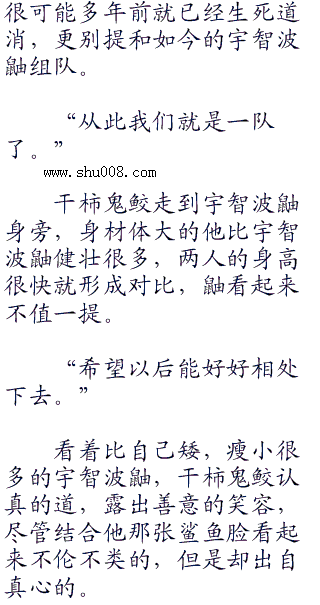 很可能多年前就已经生死道
消，更别提和如今的宇智波
鼬组队。
“从此我们就是一队
了。”
www.shu008.com
干柿鬼鲛走到宇智波鼬
身旁，身材体大的他比宇智
波鼬健壮很多，两人的身高
很快就形成对比，鼬看起来
不值一提。
“希望以后能好好相处
下去。”
看着比自己矮，瘦小很
多的宇智波鼬，干柿鬼鲛认
真的道，露出善意的笑容，
尽管结合他那张鲨鱼脸看起
来不伦不类的，但是却出自
真心的。